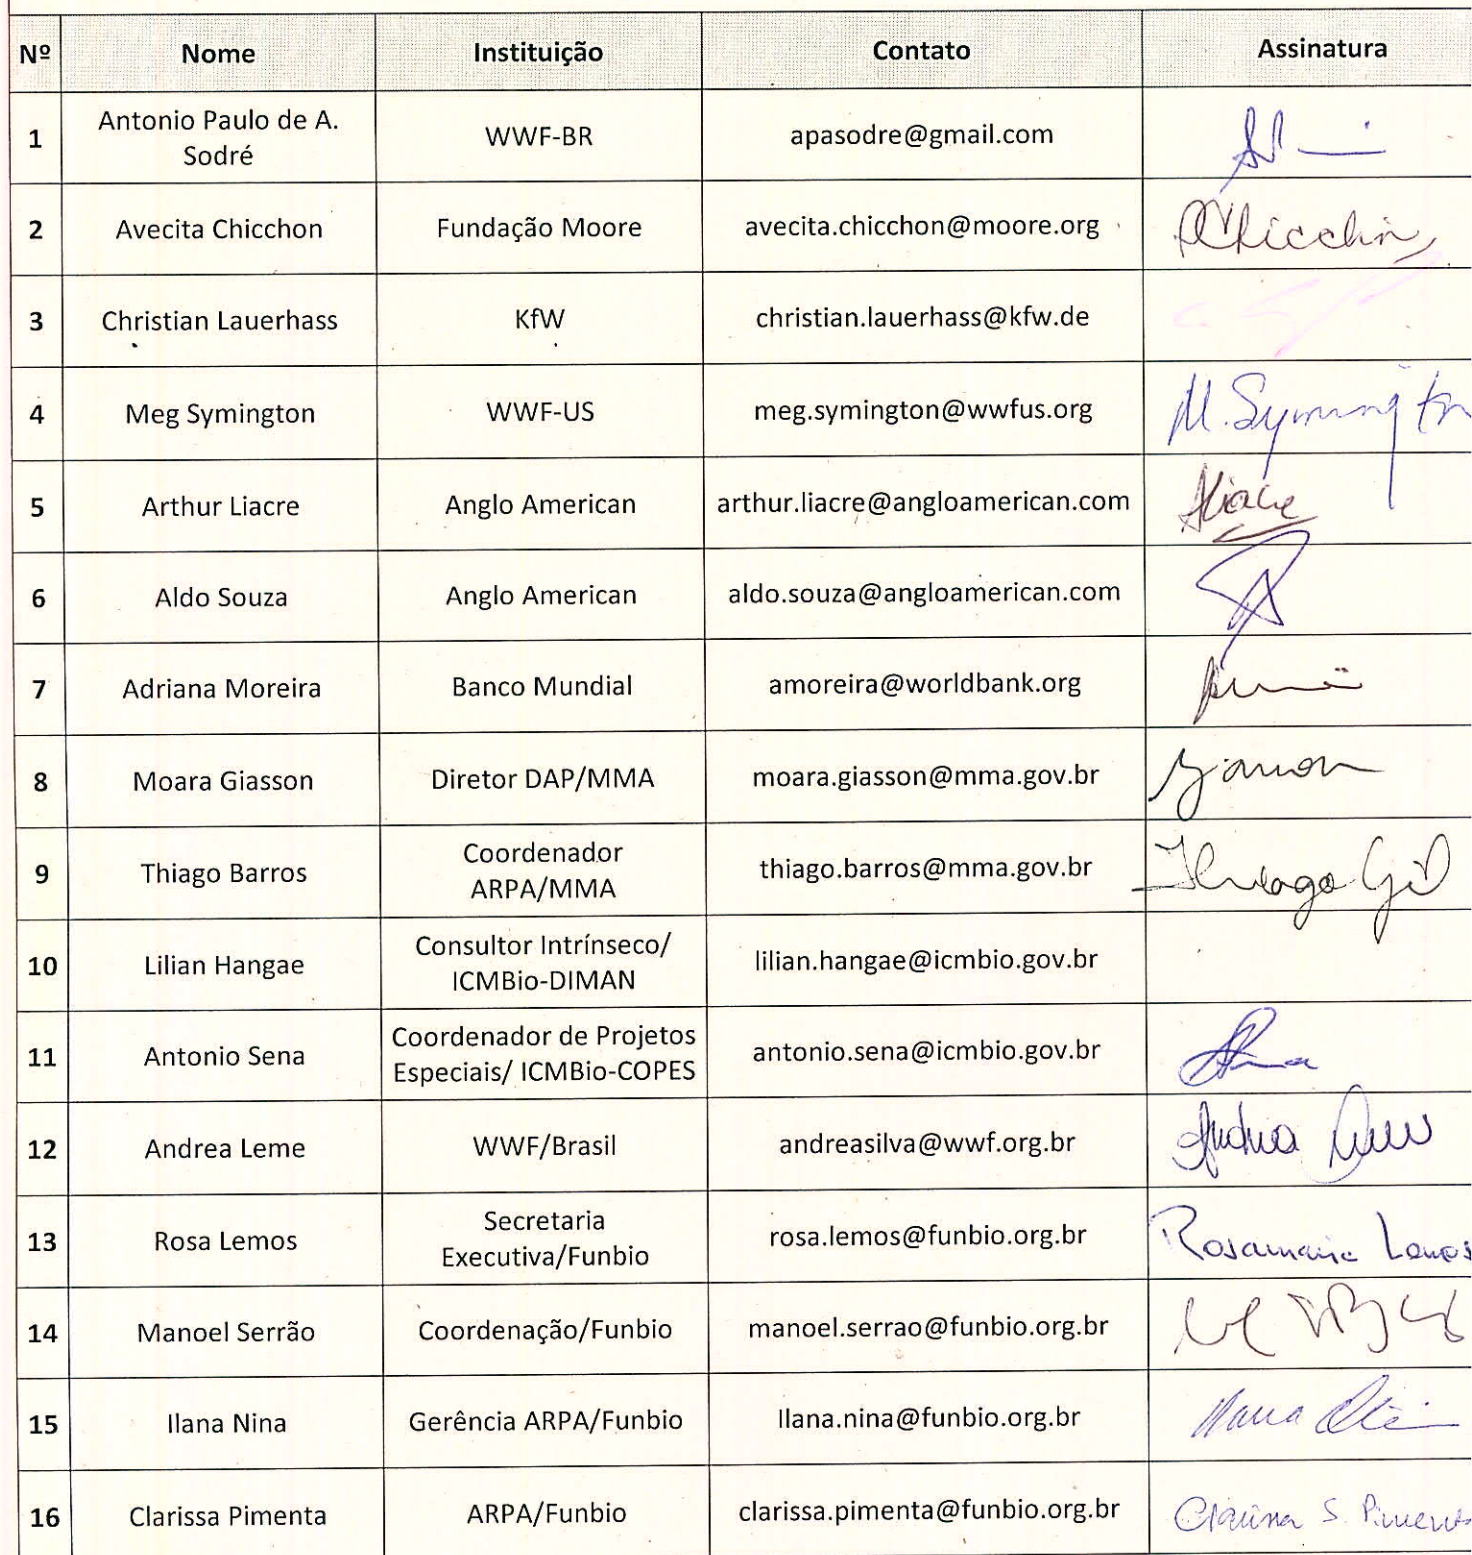 Nº Nome Instituição Contato Assinatura
1 Antonio Paulo de A. Sodré WWF-BR apasodre@gmail.com
2 Avecita Chicchon Fundação Moore avecita.chicchon@moore.org Chicchón
3 Christian Lauerhass KfW christian.lauerhass@kfw.de
4 Meg Symington WWF-US meg.symington@wwfus.org M. Symington
5 Arthur Liacre Anglo American arthur.liacre@angloamerican.com ALiacre
6 Aldo Souza Anglo American aldo.souza@angloamerican.com
7 Adriana Moreira Banco Mundial amoreira@worldbank.org
8 Moara Giasson Diretor DAP/MMA moara.giasson@mma.gov.br
9 Thiago Barros Coordenador ARPA/MMA thiago.barros@mma.gov.br Thiago Gil
10 Lilian Hangae Consultor Intrínseco/ ICMBio-DIMAN lilian.hangae@icmbio.gov.br
11 Antonio Sena Coordenador de Projetos Especiais/ ICMBio-COPES antonio.sena@icmbio.gov.br
12 Andrea Leme WWF/Brasil andreasilva@wwf.org.br Andrea Leme
13 Rosa Lemos Secretaria Executiva/Funbio rosa.lemos@funbio.org.br Rosamaria Lemos
14 Manoel Serrão Coordenação/Funbio manoel.serrao@funbio.org.br
15 Ilana Nina Gerência ARPA/Funbio Ilana.nina@funbio.org.br Ilana
16 Clarissa Pimenta ARPA/Funbio clarissa.pimenta@funbio.org.br Clarissa S. Pimenta